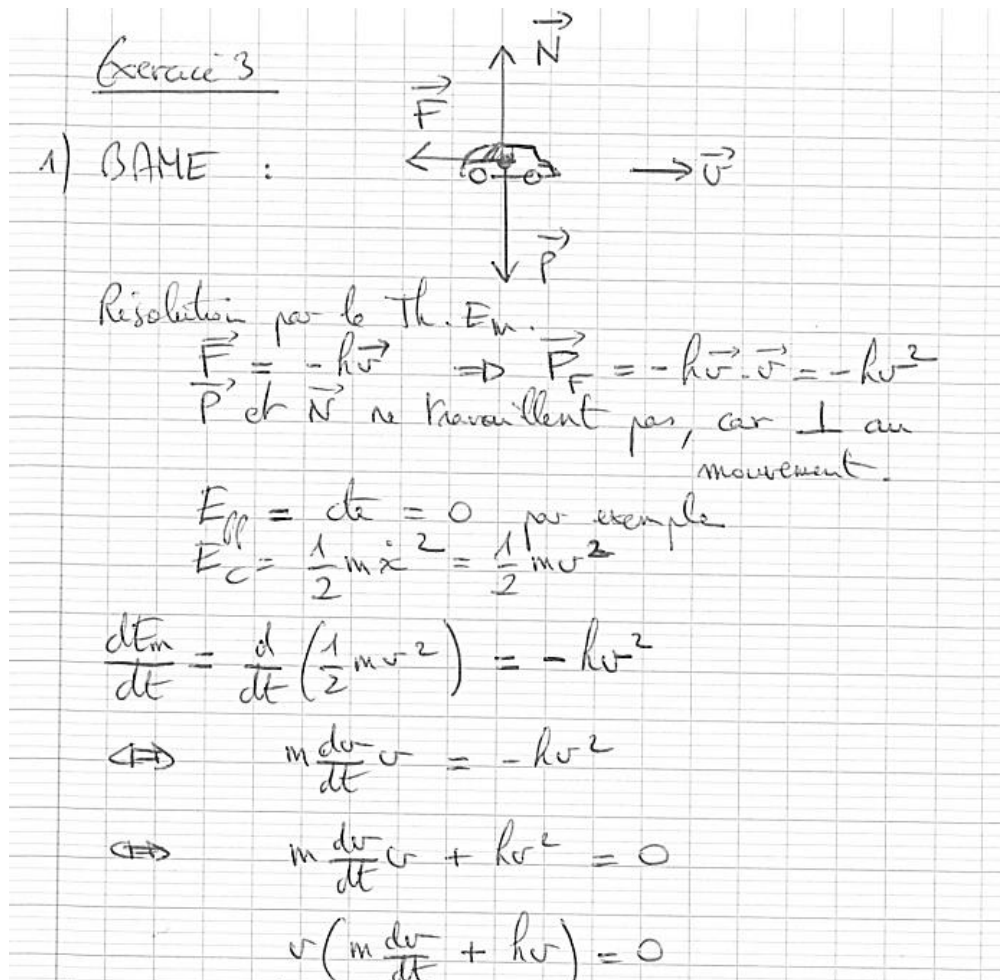 Exercice 3
N⃗
F⃗
1) BAME :
v⃗
P⃗
Résolution par le Th. Em.
F⃗ = -hv⃗ => P⃗_F = -hv⃗.v⃗ = -hv²
P⃗ et N⃗ ne travaillent pas, car ⊥ au
mouvement.
Epp = cte = 0 par exemple
Ec = 1/2 mẋ² = 1/2 mv²
dEm/dt = d/dt (1/2 mv²) = -hv²
<=> m dv/dt v = -hv²
<=> m dv/dt v + hv² = 0
v(m dv/dt + hv) = 0